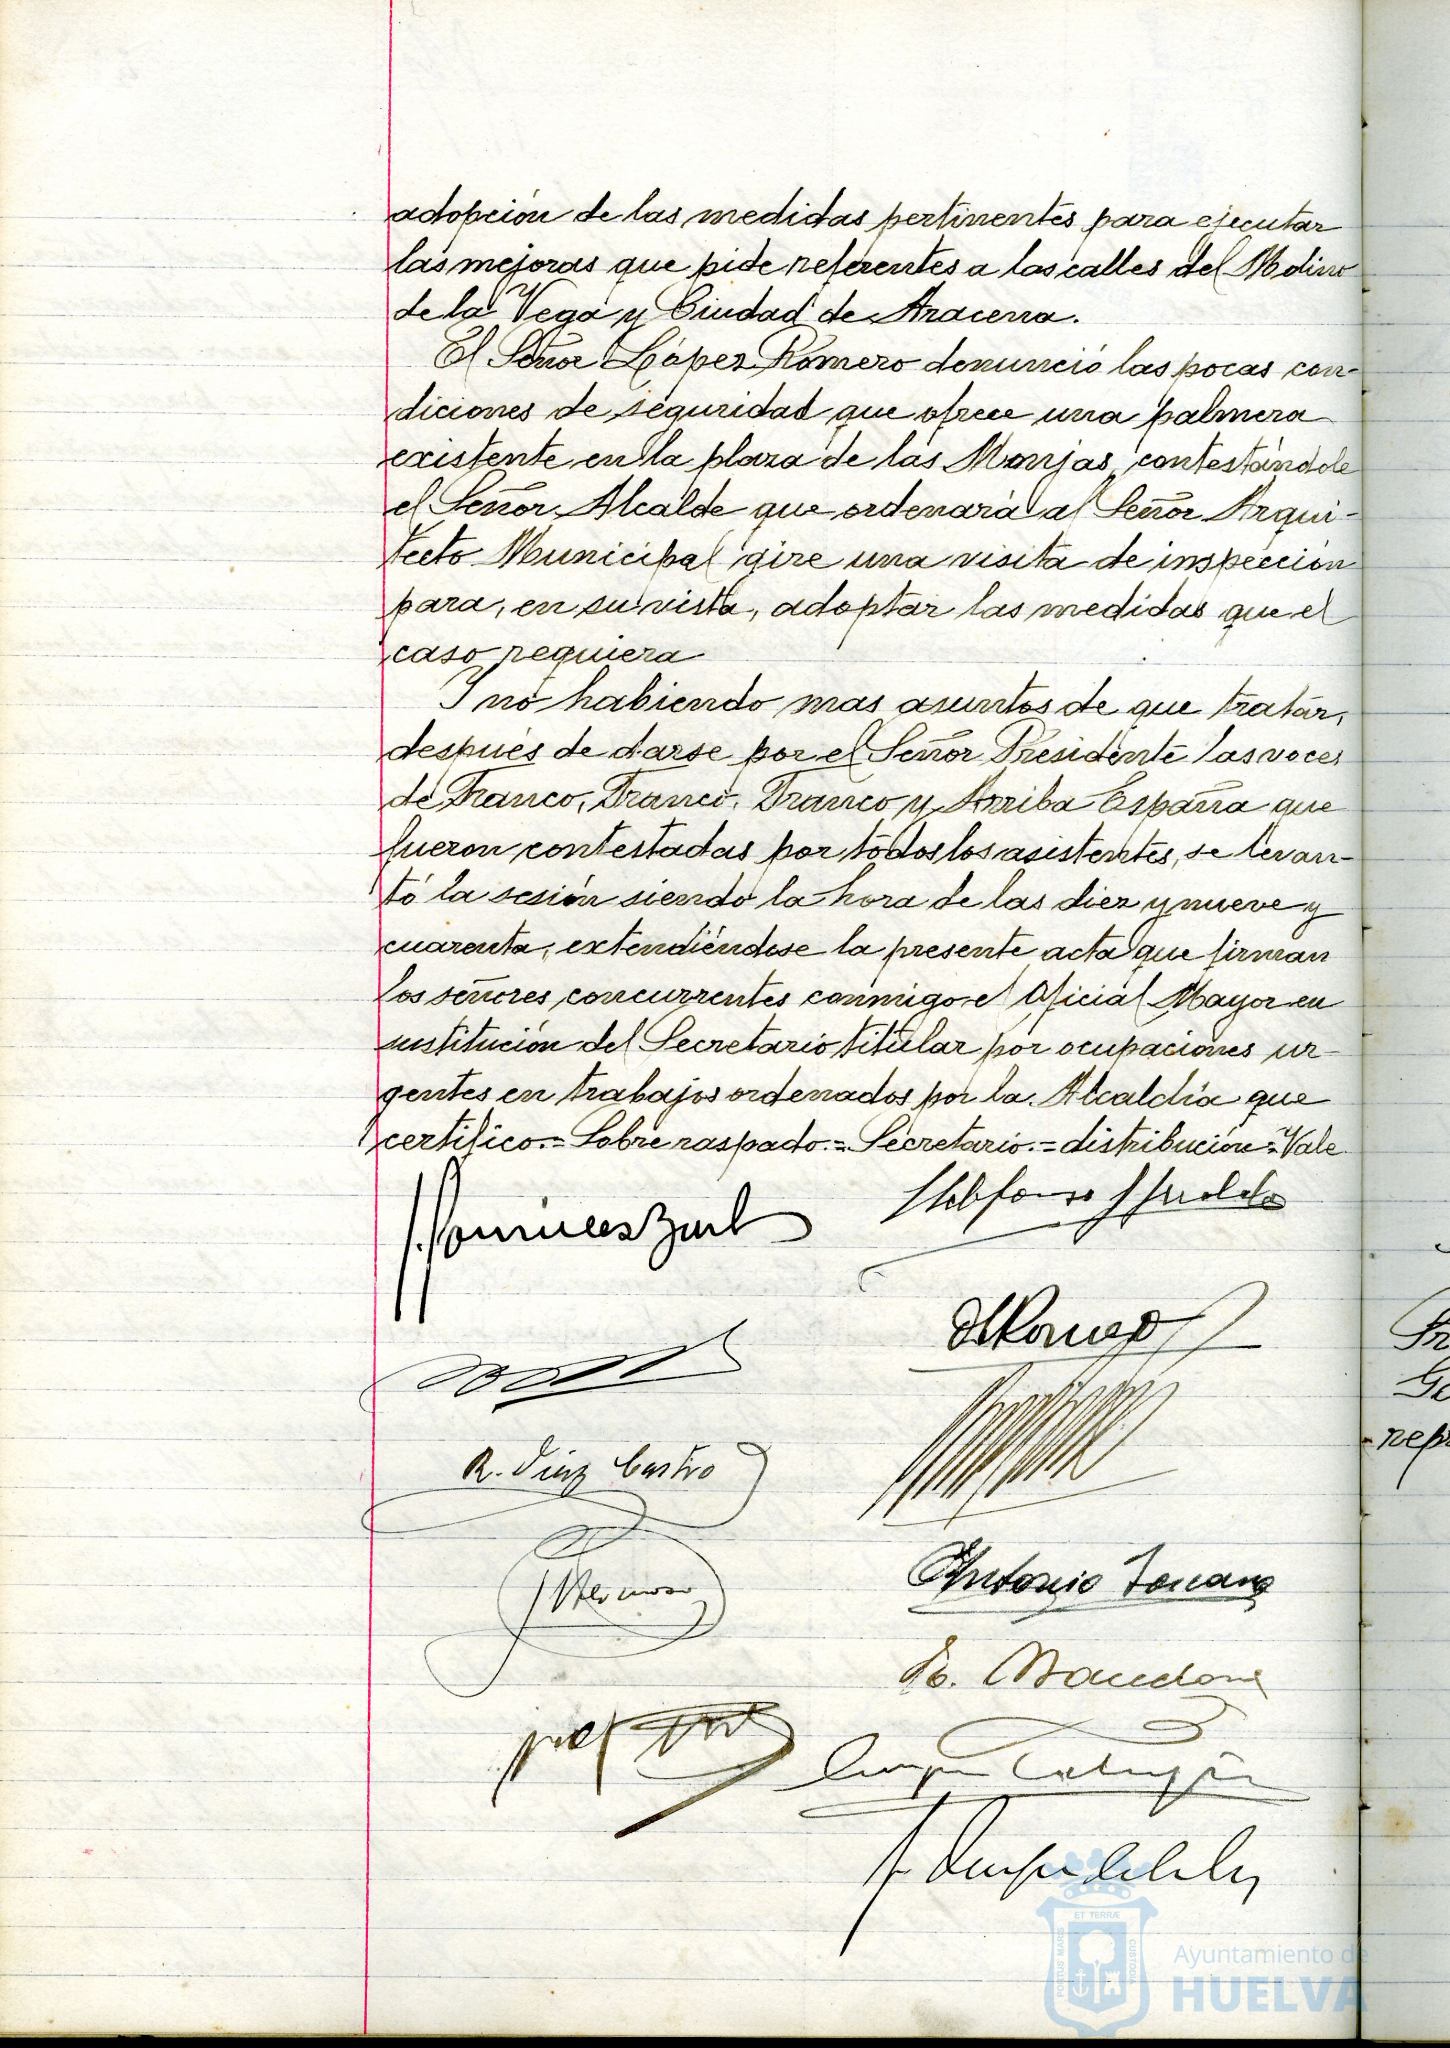 adopción de las medidas pertinentes para ejecutar
las mejoras que pide referentes a las calles del Molino
de la Vega y Ciudad de Aracena.
El Señor López Romero denunció las pocas con-
diciones de seguridad que ofrece una palmera
existente en la plaza de las Monjas, contestándole
el Señor Alcalde que ordenará al Señor Arqui-
tecto Municipal gire una visita de inspección
para, en su vista, adoptar las medidas que el
caso requiera
Y no habiendo mas asuntos de que tratar,
después de darse por el Señor Presidente las voces
de Franco, Franco, Franco y Arriba España que
fueron contestadas por todos los asistentes, se levan-
tó la sesión siendo la hora de las diez y nueve y
cuarenta, extendiéndose la presente acta que firman
los señores concurrentes conmigo el Oficial Mayor en
sustitución del Secretario titular por ocupaciones ur-
gentes en trabajos ordenados por la Alcaldía que
certifico.=Sobre raspado.=Secretario.=distribución=Vale
R. Díaz Castro
Antonio
Ge
rep
ET TERRÆ
PORTUS MARIS
CUSTODIA
Ayuntamiento de
HUELVA